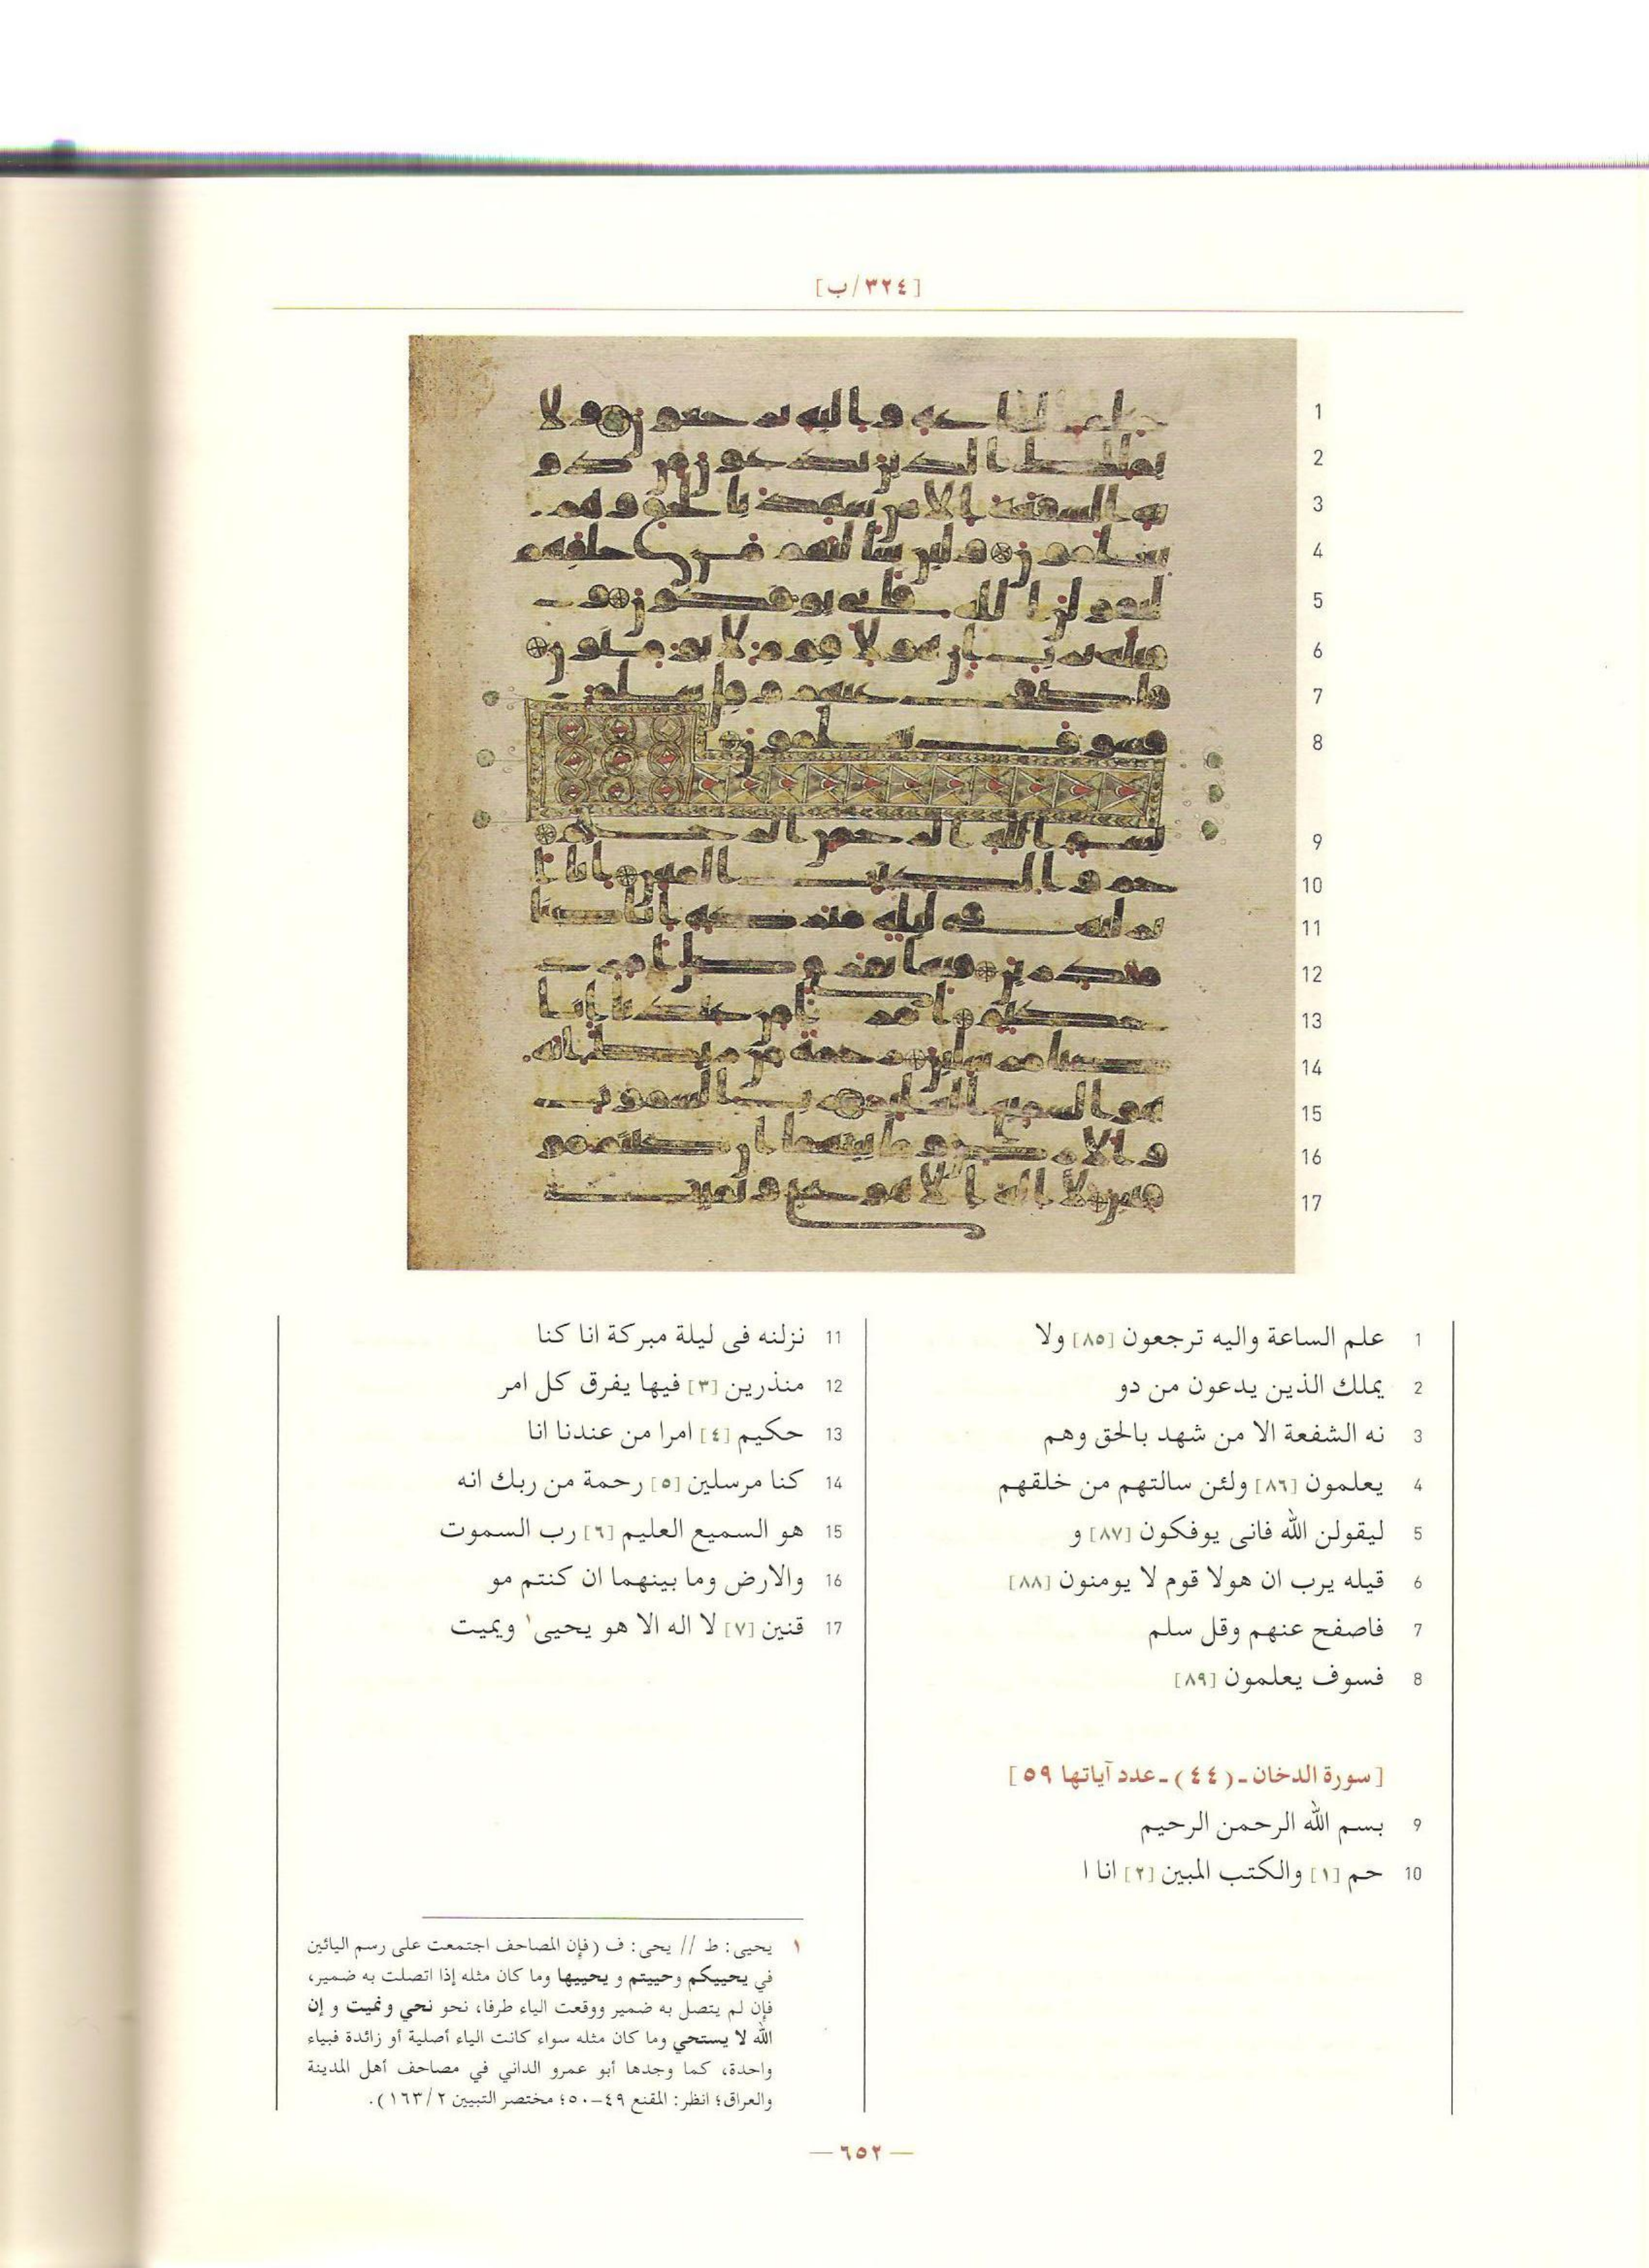 [٣٢٤/ب]
1
2
3
4
5
6
7
8
9
10
11
12
13
14
15
16
17
1 علم الساعة واليه ترجعون [٨٥] ولا
2 يملك الذين يدعون من دو
3 نه الشفعة الا من شهد بالحق وهم
4 يعلمون [٨٦] ولئن سالتهم من خلقهم
5 ليقولن الله فانى يوفكون [٨٧] و
6 قيله يرب ان هولا قوم لا يومنون [٨٨]
7 فاصفح عنهم وقل سلم
8 فسوف يعلمون [٨٩]
[سورة الدخان ـ (٤٤) ـ عدد آياتها ٥٩]
9 بسم الله الرحمن الرحيم
10 حم [١] والكتب المبين [٢] انا ا
11 نزلنه فى ليلة مبركة انا كنا
12 منذرين [٣] فيها يفرق كل امر
13 حكيم [٤] امرا من عندنا انا
14 كنا مرسلين [٥] رحمة من ربك انه
15 هو السميع العليم [٦] رب السموت
16 والارض وما بينهما ان كنتم مو
17 قنين [٧] لا اله الا هو يحيى١ ويميت
١ يحيى: ط // يحى: ف (فإن المصاحف اجتمعت على رسم اليائين
في يحييكم وحييتم و يحييها وما كان مثله إذا اتصلت به ضمير،
فإن لم يتصل به ضمير ووقعت الياء طرفا، نحو نحي ونميت و إن
الله لا يستحي وما كان مثله سواء كانت الياء أصلية أو زائدة فبياء
واحدة، كما وجدها أبو عمرو الداني في مصاحف أهل المدينة
والعراق؛ انظر: المقنع ٤٩–٥٠؛ مختصر التبيين ١٦٣/٢).
— ٦٥٢ —